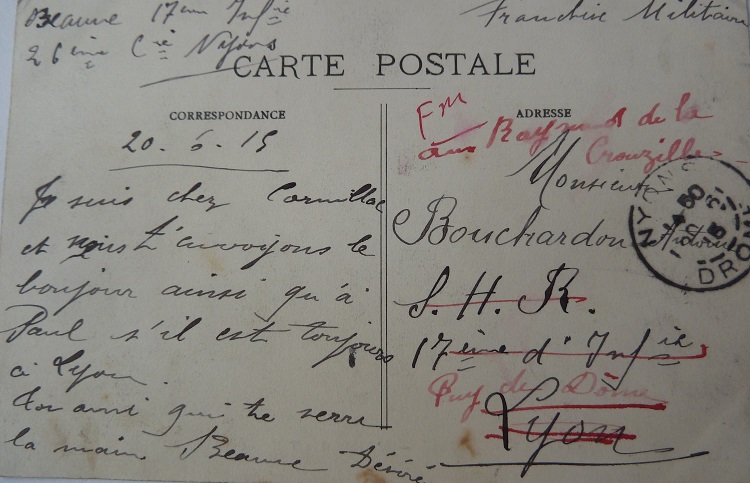 Beaune 17ème Infie
Franchise Militaire
26ème Cie Nyons
CARTE POSTALE
CORRESPONDANCE
ADRESSE
20. 6. 15
Je suis chez Cornillac
et nous t'envoyons le
bonjour ainsi qu'à
Paul s'il est toujours
à Lyon.
Ton ami qui te serre
la main Beaune Désiré
FM
aux Raymond de la
Crouzille
Monsieur
Bouchardon
S. H. R.
17ème d'Infie
Puy de Dôme
Lyon
NYONS
DROME